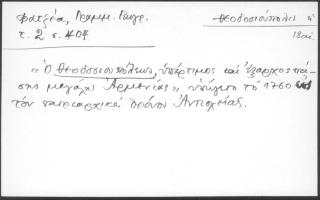 Φατζέα, Γραμμ. Γεωγρ.
τ. 2 σ. 404
Θεοδοσιούπολις
18αι
"ὁ Θεοδοσιουπόλεως, ὑπέρτιμος καὶ ἔξαρχος πά-
σης μεγάλης Ἀρμενίας", ὑπήγετο τὸ 1760
τὸν πατριαρχικὸ θρόνο Ἀντιοχείας.